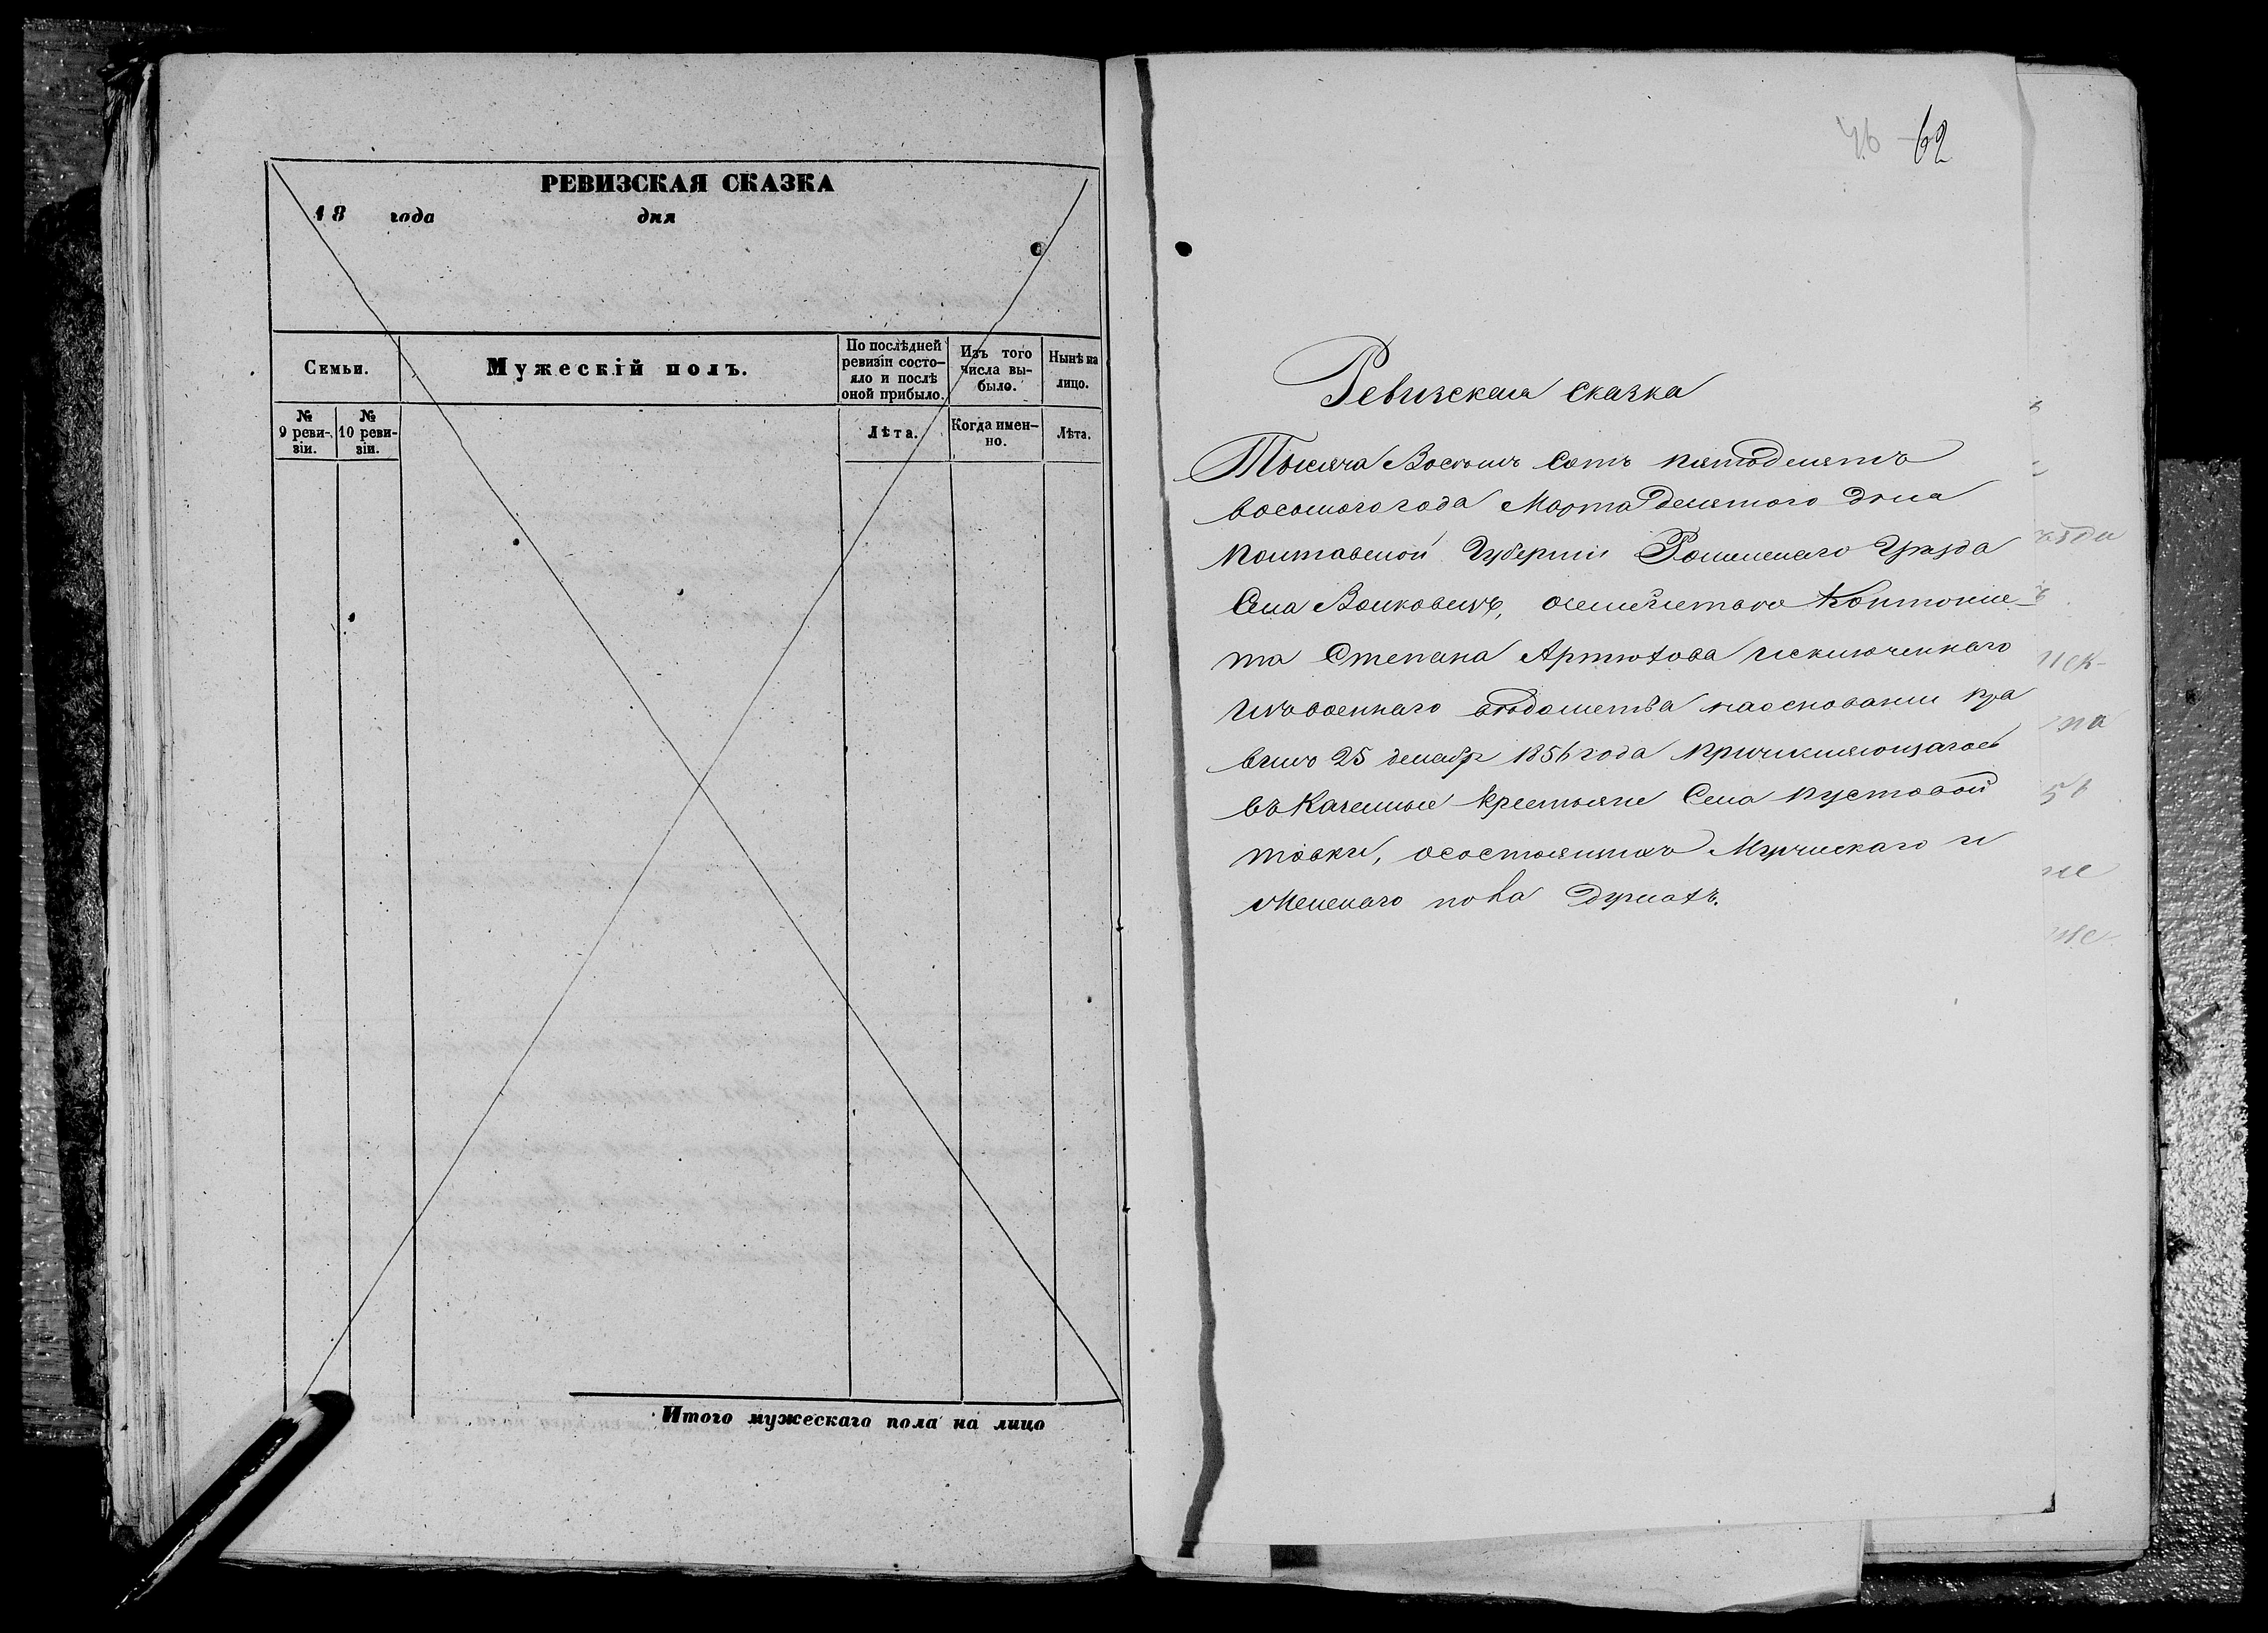 РЕВИЗСКАЯ СКАЗКА
18 года дня
Семьи.
Мужескій полъ.
По послѣдней ревизіи состо-
яло и послѣ
оной прибыло.
Изъ того
числа вы-
было.
Нынѣ на
лицо.
№
9 реви-
зіи.
№
10 реви-
зіи.
Лѣта.
Когда имен-
но.
Лѣта.
Итого мужескаго пола на лицо
62
Ревизская сказка
Тысяча Восемь Сотъ пятодесятъ
восьмого года Марта десятого дня
Полтавской Губерніи Роменскаго Уѣзда
Села Волковецъ, осемействе Контонис-
та Степана Артюхова исключеннаго
изъ военнаго вѣдомства наосновании пра
вилъ 25 декабр 1856 года причисляющагося
въ Казенные крестьяне Села Пустовой
товки, осостоящихъ Мужескаго и
Женскаго пола Душахъ.